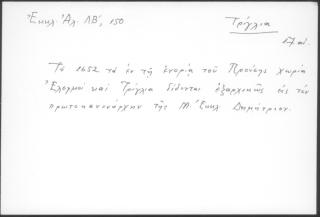 Ἐκκλ. Ἀλ. ΛΒ', 150.
Τρίγλια
Τῷ 1652 τὰ ἐν τῇ ἐνορίᾳ τοῦ Προύσης χωρία
Ἐλεγμοὶ καὶ Τρίγλια δίδονται ἐξαρχικῶς εἰς τὸν
πρωτοκανονάρχην τῆς Μ. Ἐκκλ. Δημήτριον.